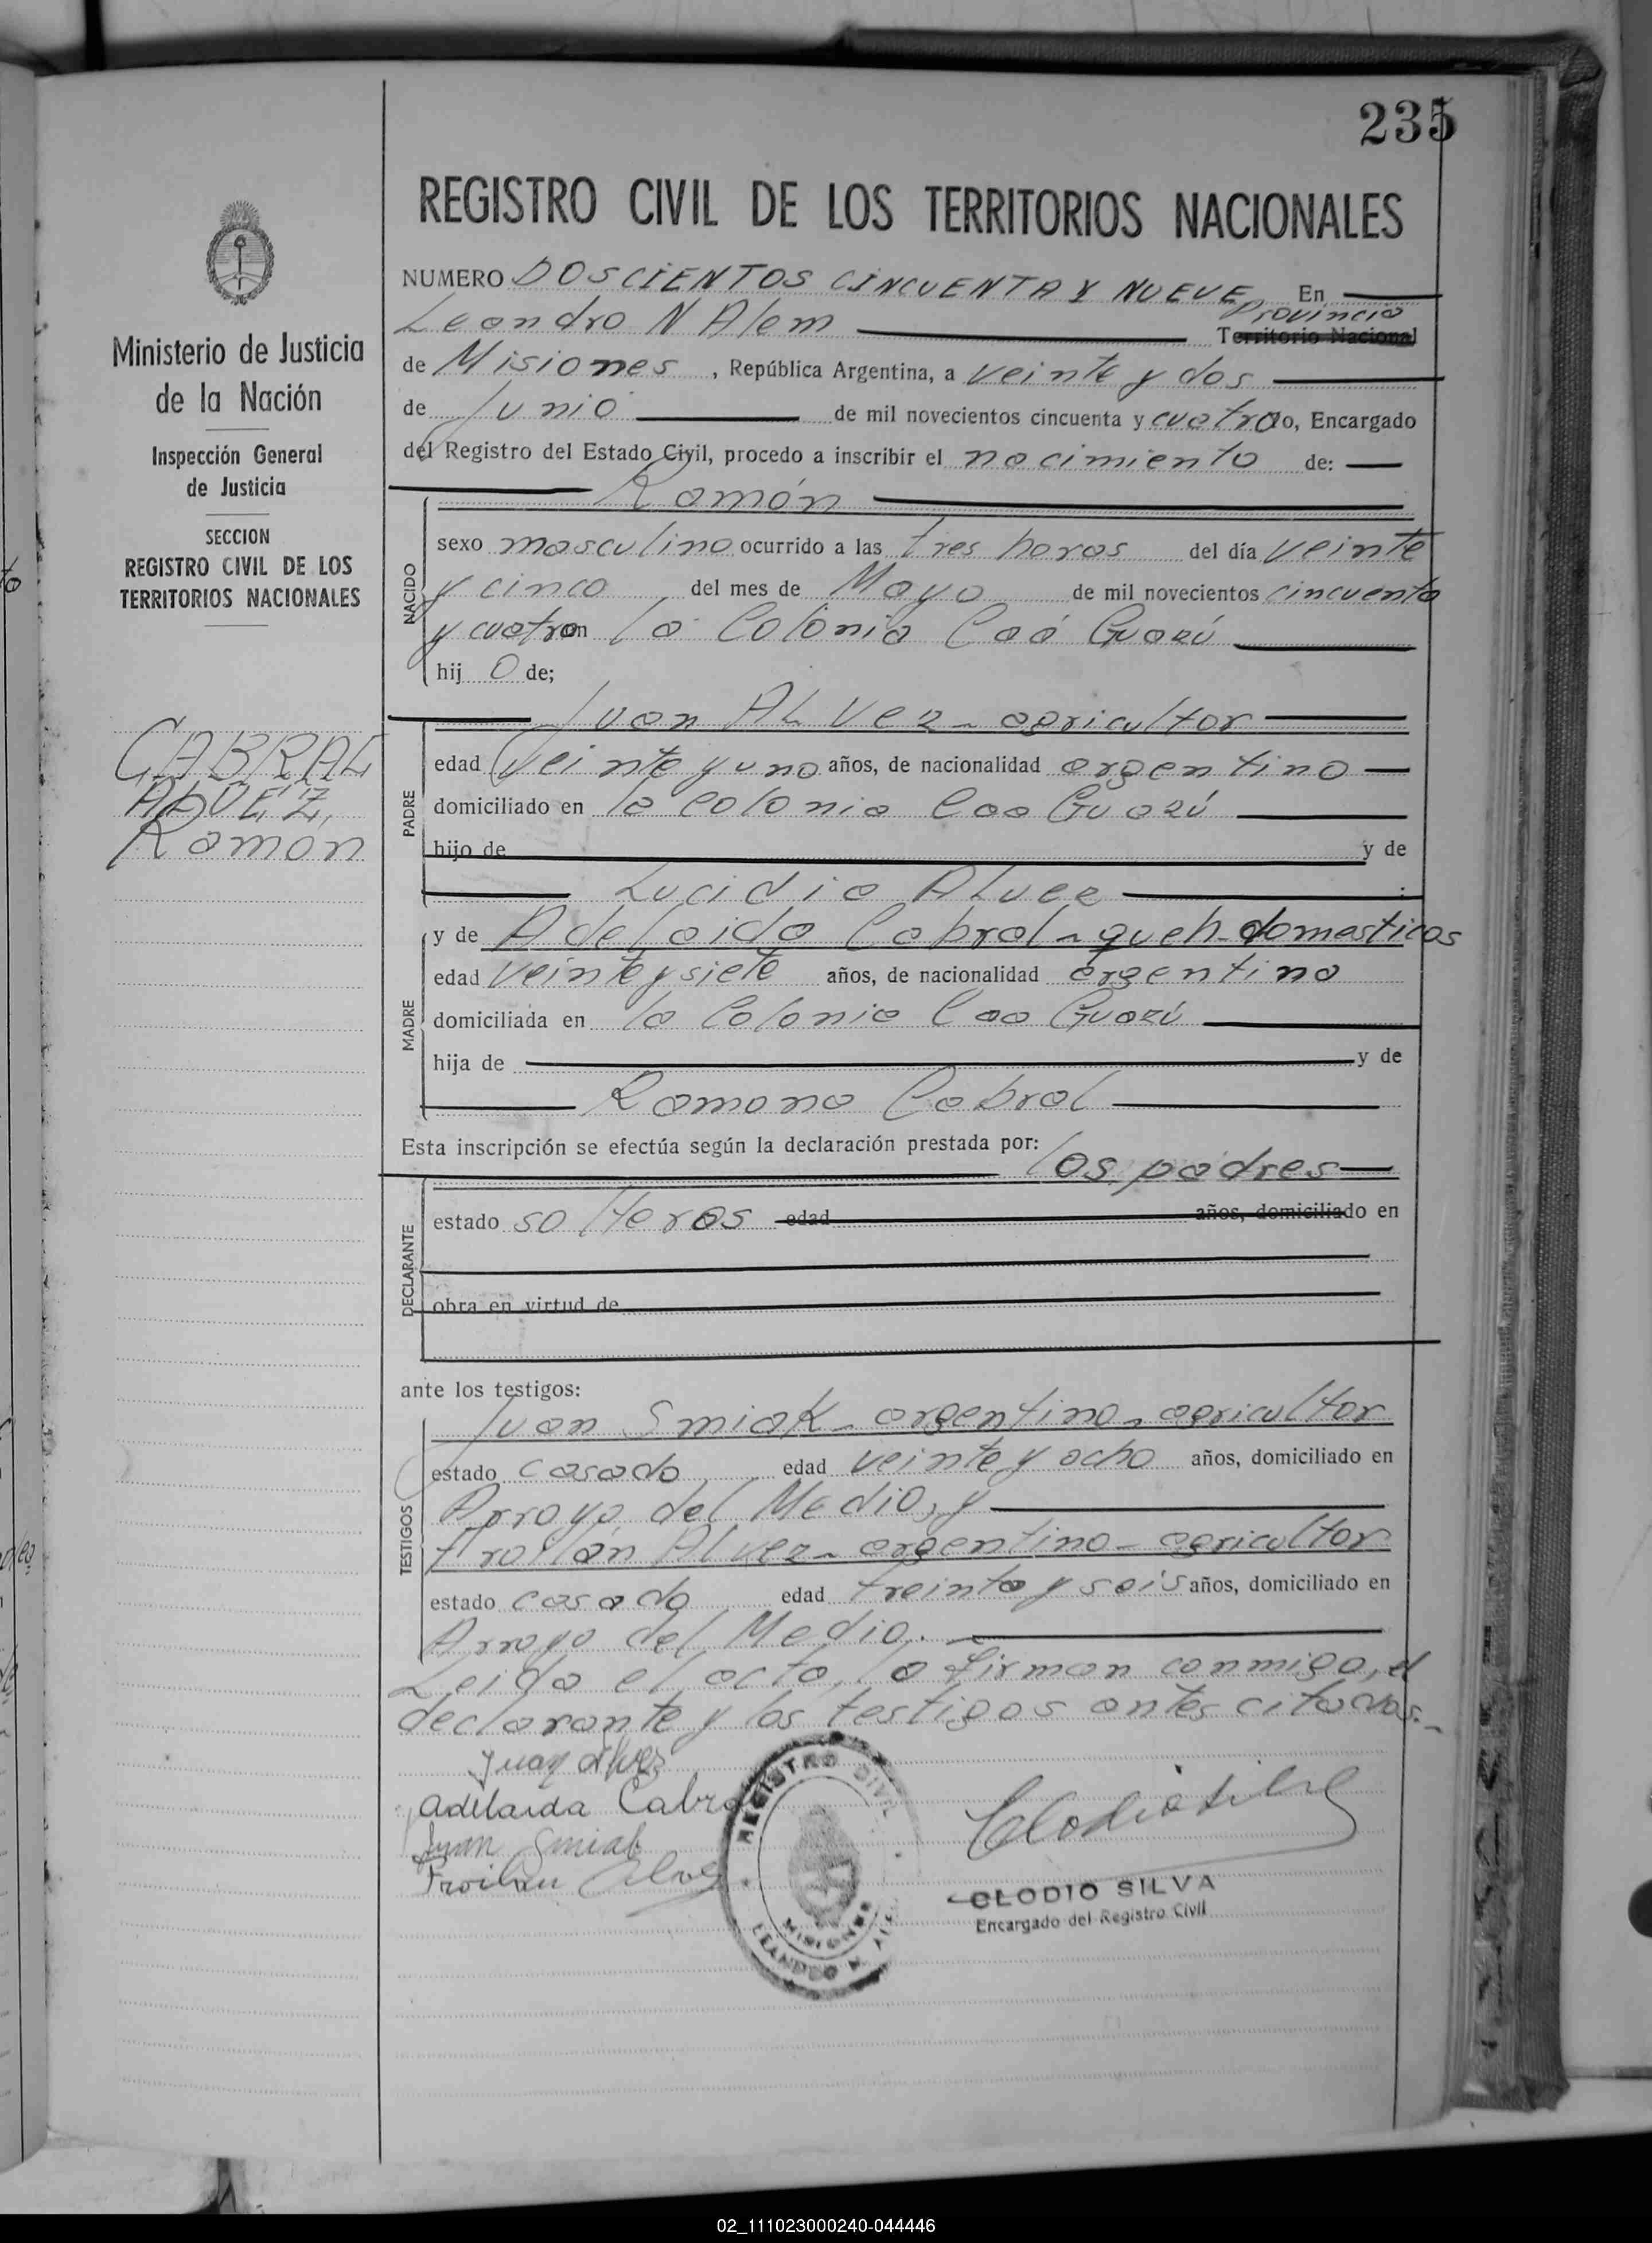 235
REGISTRO CIVIL DE LOS TERRITORIOS NACIONALES
Ministerio de Justicia
de la Nación
Inspección General
de Justicia
SECCION
REGISTRO CIVIL DE LOS
TERRITORIOS NACIONALES
CABRAL
ALVEZ,
Ramón
NUMERO DOSCIENTOS CINCUENTA Y NUEVE, En
Provincia
Leandro N Alem Territorio Nacional
de Misiones, República Argentina, a veinte y dos
de Junio de mil novecientos cincuenta y cuatro yo, Encargado
del Registro del Estado Civil, procedo a inscribir el nacimiento de:
Ramón
NACIDO
sexo masculino ocurrido a las tres horas del día veinte
y cinco del mes de Mayo de mil novecientos cincuenta
y cuatro en la Colonia Caá Guazú
hij o de;
Juan ALVez - agricultor
PADRE
edad veinte y uno años, de nacionalidad argentino
domiciliado en la Colonia Caa Guazú
hijo de y de
Lucidia Alvez
MADRE
y de Adelaida Cabral - queh. domesticos
edad veinte y siete años, de nacionalidad argentina
domiciliada en la Colonia Caa Guazú
hija de y de
Ramona Cabral
Esta inscripción se efectúa según la declaración prestada por:
los padres
DECLARANTE
estado solteros edad años, domiciliado en
obra en virtud de
ante los testigos:
TESTIGOS
Juan Smiak - argentino - agricultor
estado casado edad veinte y ocho años, domiciliado en
Arroyo del Medio, y
Froilán Alvez - argentino - agricultor
estado casado edad treinta y seis años, domiciliado en
Arroyo del Medio. -
Leida el acta, la firman conmigo, el
declarante y los testigos antes citados. -
Juan Alvez
Adelaida Cabral
Juan Smiak
Froilan Alvez
REGISTRO CIVIL
MISIONES
LEANDRO N. ALEM
Clodio Silva
CLODIO SILVA
Encargado del Registro Civil
02_111023000240-044446